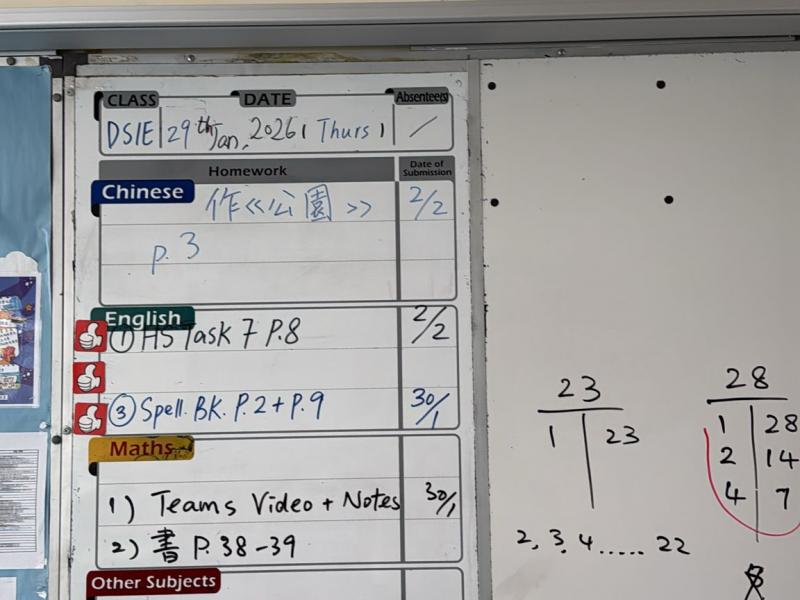 CLASS DATE Absentee(s)
D5IE 29th Jan, 2026 ( Thurs ) /
Homework Date of Submission
Chinese
作《公園》 2/2
p. 3
English
① HS Task 7 P.8 2/2
③ Spell. BK. P.2 + P.9 30/1
Maths
1) Teams Video + Notes 30/1
2) 書 P. 38 - 39
Other Subjects
23
1 23
2, 3, 4 ..... 22
28
1 28
2 14
4 7